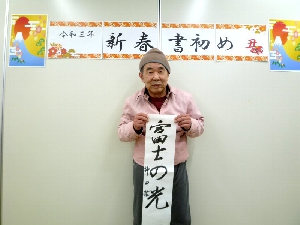 令和三年
新春書初め
丑
富士の光